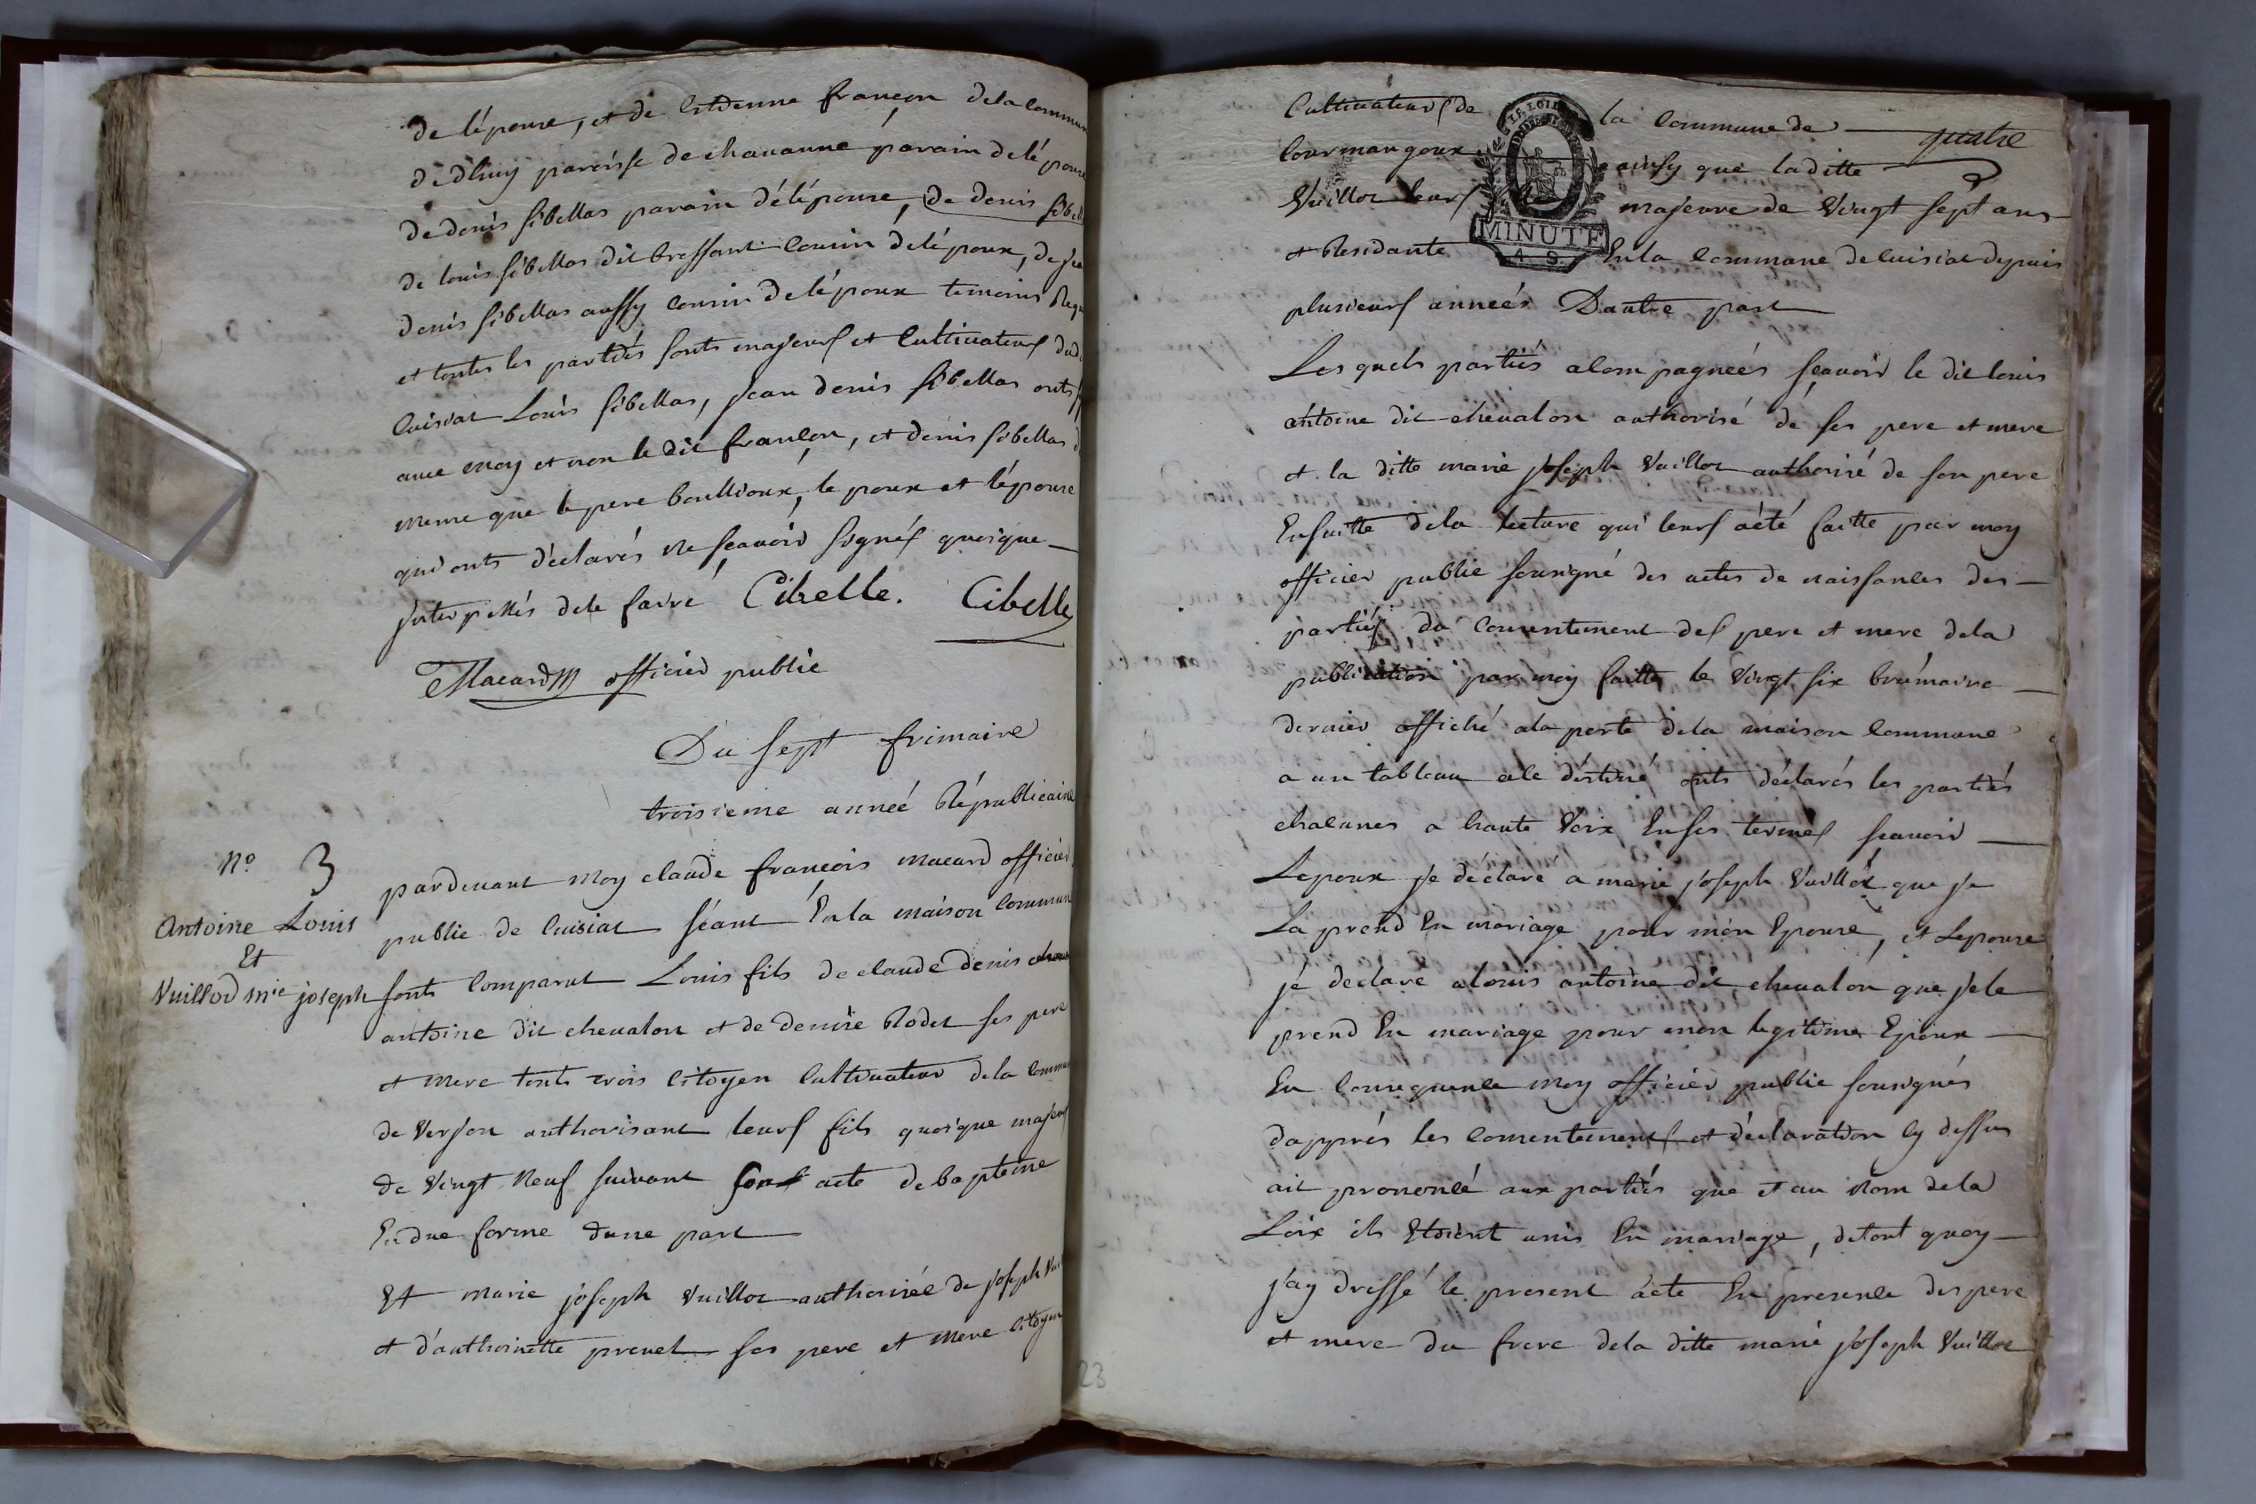 de lépouse, et de Estienne françon dela commun
de dhuy paroisse de chavanne parain delépouse
de denis sibellas parain délépouse, de denis sibell
de louis sibellas dit bressant cousin delépoux, de jea
denis sibellas aussy cousin delépoux temoins Requ
et toutes les partiés sonts majeurs et Cultivateurs dud
Cuisiat Louis sibellas, jean denis sibellas onts
avec moy et non le dit françon, et denis sibellas d
meme que le pere boullioux, lepoux et lépouse
qui onts déclarés ne sçavoir signés quoique
jnterpellés dele faire Cibelle. Cibelle
Macard officier public
Du sept frimaire
troisieme anneé Républicaine
N.º 3
Antoine Louis
Et
Vuillod mie joseph
pardevant moy claude francois macard officier
public de Cuisiat séant En la maison commun
sont comparut Louis fils de claude denis
antoine dit chevalon et de denise Rodet ses pere
et mere touts trois Citoyen Cultivateur dela Commu
de Verjon authorisant leurs fils quoique majeur
de Vingt Neuf suivant son acte de bapteme
En due forme dune part
Et marie joseph Vuillot authorisée de joseph Vui
et d'anthoinette prevel ses pere et mere Citoyen
23
Cultivateurs de la Commune de
quatre
Courmangoux ainsy que laditte
Vuillot leurs fille majeure de Vingt sept ans
MINUTE
et Residante En la Commune de Cuisiat depuis
plusieurs anneés Dautre part
Lesquels partiés acompagneés sçavoir le dit louis
antoine dit chevalon authorisé dé ses pere et mere
et la ditte marie joseph Vuillot authorisé de son pere
Ensuitte dela lecture qui leurs aété faitte par moy
officier public sousigné des actes de naissances des
partiés du consentement des pere et mere dela
publication par moy faitte le Vingt six brumaire
dernier affiché ala porte dela maison Commune
a un tableau ace déstiné onts déclarés les partiés
chacunes a haute Voix En ses termes scavoir
Lepoux je déclaré a marie joseph Vuillot que je
La prend En mariage pour mon Epouse, et Lepouse
jé declare alouis antoine dit chevalon que jele
prend En mariage pour mon legitime Epoux
En Consequence moy officier public sousignés
dapprés les consentements et déclaration cy dessus
ait prononcé aux partiés que et au Nom dela
Loix ils Etoient unis En mariage, detout quoy
j'ay dressé le present acte En présence des pere
et mere du frere dela ditte marie joseph Vuillot